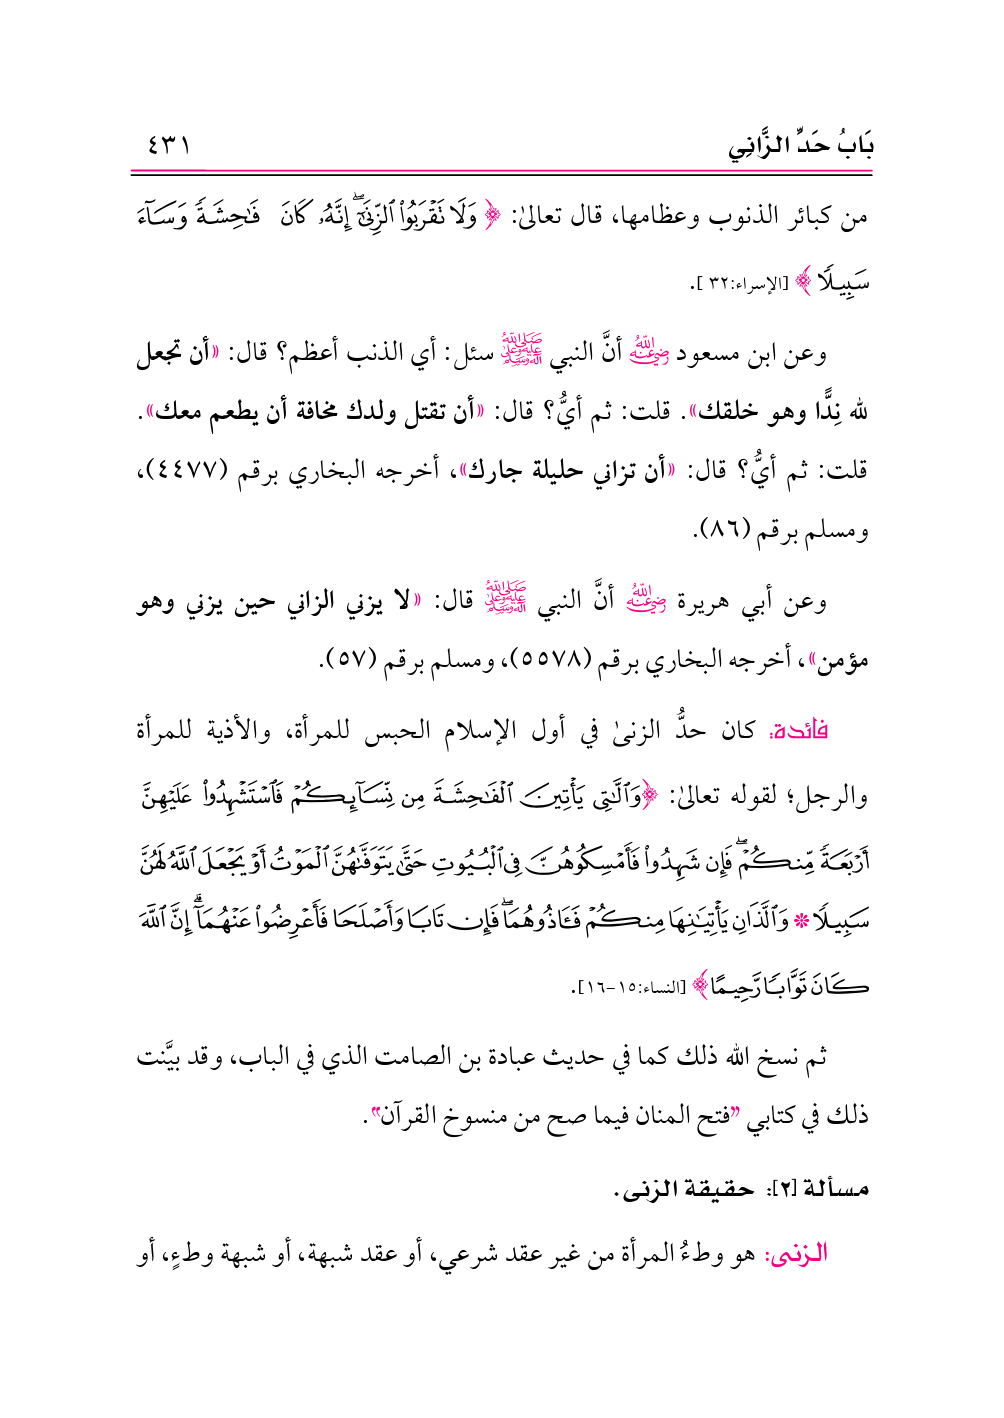 بَابُ حَدِّ الزَّانِي ٤٣١
من كبائر الذنوب وعظامها، قال تعالىٰ: ﴿وَلَا تَقْرَبُوا۟ ٱلزِّنَىٰٓ ۖ إِنَّهُۥ كَانَ فَـٰحِشَةً وَسَآءَ
سَبِيلًا﴾ [الإسراء:٣٢].
وعن ابن مسعود رضي الله عنه أنَّ النبي ﷺ سئل: أي الذنب أعظم؟ قال: «أن تجعل
لله نِدًّا وهو خلقك». قلت: ثم أيُّ؟ قال: «أن تقتل ولدك مخافة أن يطعم معك».
قلت: ثم أيُّ؟ قال: «أن تزاني حليلة جارك»، أخرجه البخاري برقم (٤٤٧٧)،
ومسلم برقم (٨٦).
وعن أبي هريرة رضي الله عنه أنَّ النبي ﷺ قال: «لا يزني الزاني حين يزني وهو
مؤمن»، أخرجه البخاري برقم (٥٥٧٨)، ومسلم برقم (٥٧).
فائدة: كان حدُّ الزنىٰ في أول الإسلام الحبس للمرأة، والأذية للمرأة
والرجل؛ لقوله تعالىٰ: ﴿وَٱلَّـٰتِى يَأْتِينَ ٱلْفَـٰحِشَةَ مِن نِّسَآئِكُمْ فَٱسْتَشْهِدُوا۟ عَلَيْهِنَّ
أَرْبَعَةً مِّنكُمْ ۖ فَإِن شَهِدُوا۟ فَأَمْسِكُوهُنَّ فِى ٱلْبُيُوتِ حَتَّىٰ يَتَوَفَّىٰهُنَّ ٱلْمَوْتُ أَوْ يَجْعَلَ ٱللَّهُ لَهُنَّ
سَبِيلًا * وَٱلَّذَانِ يَأْتِيَـٰنِهَا مِنكُمْ فَـَٔاذُوهُمَا ۖ فَإِن تَابَا وَأَصْلَحَا فَأَعْرِضُوا۟ عَنْهُمَآ ۗ إِنَّ ٱللَّهَ
كَانَ تَوَّابًا رَّحِيمًا﴾ [النساء:١٥-١٦].
ثم نسخ الله ذلك كما في حديث عبادة بن الصامت الذي في الباب، وقد بيَّنت
ذلك في كتابي "فتح المنان فيما صح من منسوخ القرآن".
مسألة [٢]: حقيقة الزنى.
الزنى: هو وطءُ المرأة من غير عقد شرعي، أو عقد شبهة، أو شبهة وطءٍ، أو